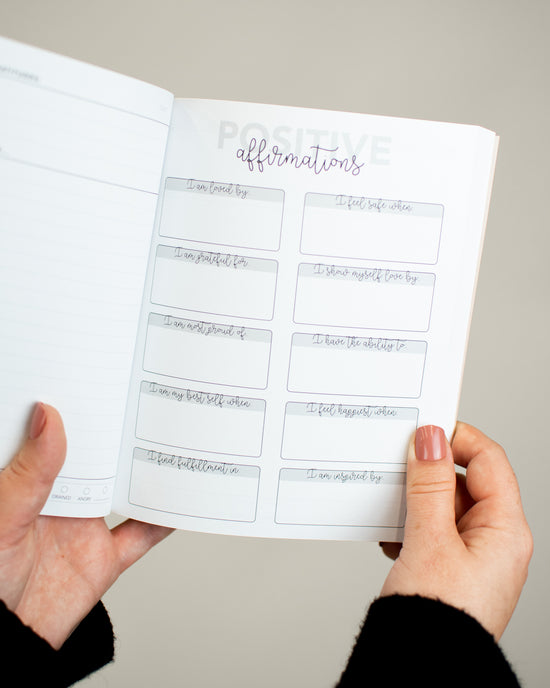 POSITIVE
affirmations
I am loved by
I feel safe when
I am grateful for
I show myself love by
I am most proud of
I have the ability to
I am my best self when
I feel happiest when
I find fulfillment in
I am inspired by
DRAINED ANGRY